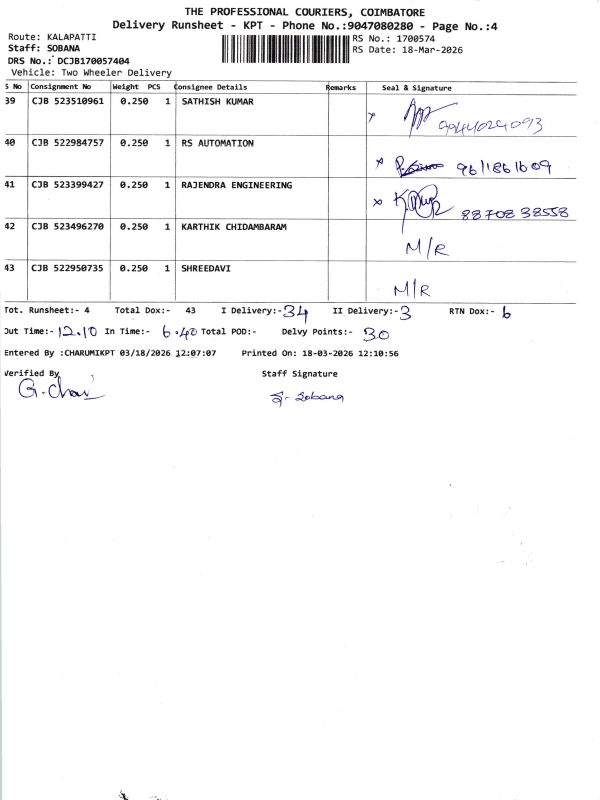 THE PROFESSIONAL COURIERS, COIMBATORE
Delivery Runsheet - KPT - Phone No.:9047080280 - Page No.:4
Route: KALAPATTI RS No.: 1700574
Staff: SOBANA RS Date: 18-Mar-2026
DRS No.: DCJB170057404
Vehicle: Two Wheeler Delivery
S No Consignment No Weight PCS Consignee Details Remarks Seal & Signature
39 CJB 523510961 0.250 1 SATHISH KUMAR
x 9944024093
40 CJB 522984757 0.250 1 RS AUTOMATION
x 9611861609
41 CJB 523399427 0.250 1 RAJENDRA ENGINEERING
x 88708 38558
42 CJB 523496270 0.250 1 KARTHIK CHIDAMBARAM
M/R
43 CJB 522950735 0.250 1 SHREEDAVI
M/R
Tot. Runsheet:- 4 Total Dox:- 43 I Delivery:- 34 II Delivery:- 3 RTN Dox:- 6
Out Time:- 12.10 In Time:- 6.40 Total POD:- Delvy Points:- 30
Entered By :CHARUMIKPT 03/18/2026 12:07:07 Printed On: 18-03-2026 12:10:56
Verified By Staff Signature